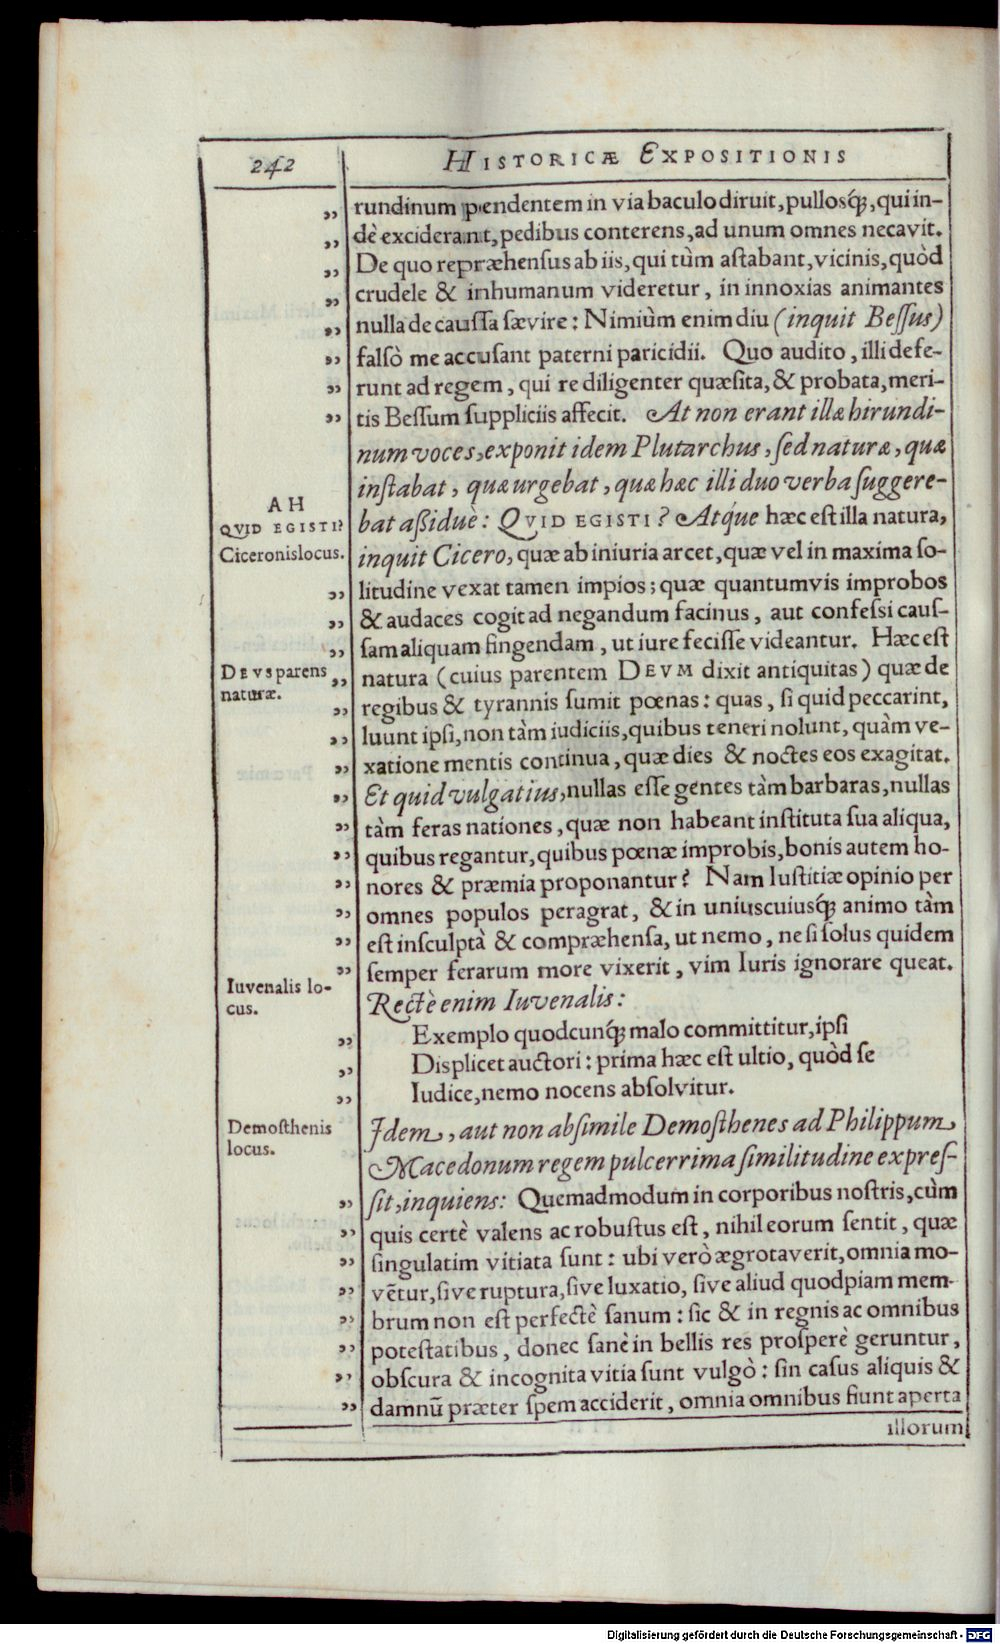 242
HISTORICÆ EXPOSITIONIS
„ rundinum pendentem in via baculo diruit, pullosq́;, qui in-
„ dè exciderant, pedibus conterens, ad unum omnes necavit.
„ De quo repræhenſus ab iis, qui tùm aſtabant, vicinis, quòd
„ crudele & inhumanum videretur, in innoxias animantes
„ nulla de cauſſa ſævire: Nimiùm enim diu (inquit Beſſus)
„ falſò me accuſant paterni paricidii. Quo audito, illi defe-
„ runt ad regem, qui re diligenter quæſita, & probata, meri-
„ tis Beſſum ſuppliciis affecit. At non erant illæ hirundi-
num voces, exponit idem Plutarchus, ſed naturæ, quæ
inſtabat, quæ urgebat, quæ hæc illi duo verba ſuggere-
AH
QVID EGISTI?
bat aßiduè: QVID EGISTI? Atq́ue hæc eſt illa natura,
Ciceronis locus.
inquit Cicero, quæ ab iniuria arcet, quæ vel in maxima ſo-
„ litudine vexat tamen impios; quæ quantumvis improbos
„ & audaces cogit ad negandum facinus, aut confeſſi cauſ-
„ ſam aliquam fingendam, ut iure feciſſe videantur. Hæc eſt
DEVS parens
naturæ.
„ natura (cuius parentem DEVM dixit antiquitas) quæ de
„ regibus & tyrannis ſumit pœnas: quas, ſi quid peccarint,
„ luunt ipſi, non tàm iudiciis, quibus teneri nolunt, quàm ve-
„ xatione mentis continua, quæ dies & noctes eos exagitat.
„ Et quid vulgatius, nullas eſſe gentes tàm barbaras, nullas
„ tàm feras nationes, quæ non habeant inſtituta ſua aliqua,
„ quibus regantur, quibus pœnæ improbis, bonis autem ho-
„ nores & præmia proponantur? Nam Iuſtitiæ opinio per
„ omnes populos peragrat, & in uniuscuiusq́; animo tàm
„ eſt inſculptà & compræhenſa, ut nemo, ne ſi ſolus quidem
„ ſemper ferarum more vixerit, vim Iuris ignorare queat.
Iuvenalis lo-
cus.
Rectè enim Iuvenalis:
„ Exemplo quodcunq́; malo committitur, ipſi
„ Displicet auctori: prima hæc eſt ultio, quòd ſe
„ Iudice, nemo nocens abſolvitur.
Demoſthenis
locus.
Idem, aut non abſimile Demoſthenes ad Philippum
Macedonum regem pulcerrima ſimilitudine expreſ-
„ ſit, inquiens: Quemadmodum in corporibus noſtris, cùm
„ quis certè valens ac robuſtus eſt, nihil eorum ſentit, quæ
„ ſingulatim vitiata ſunt: ubi verò ægrotaverit, omnia mo-
„ vẽtur, ſive ruptura, ſive luxatio, ſive aliud quodpiam mem-
„ brum non eſt perfectè ſanum: ſic & in regnis ac omnibus
„ poteſtatibus, donec ſanè in bellis res proſperè geruntur,
„ obſcura & incognita vitia ſunt vulgò: ſin caſus aliquis &
„ damnũ præter ſpem acciderit, omnia omnibus fiunt aperta
illorum
Digitalisierung gefördert durch die Deutsche Forschungsgemeinschaft - DFG